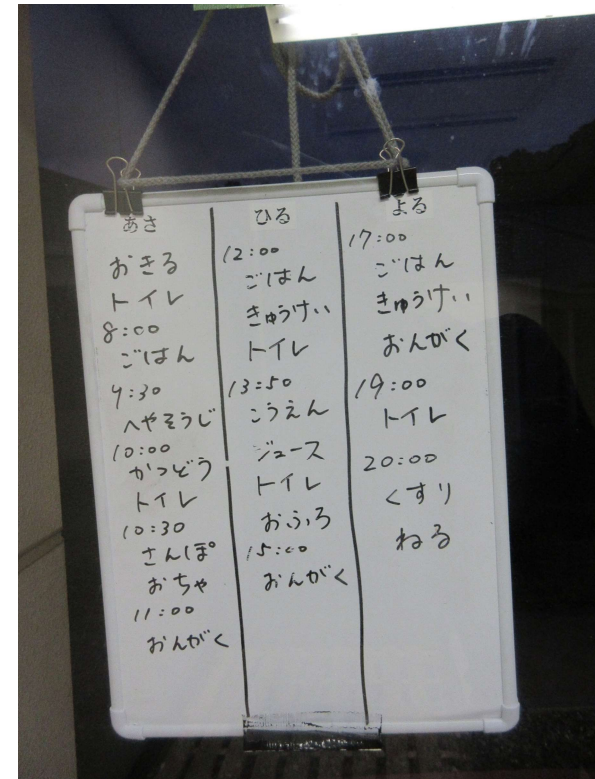 あさ
おきる
トイレ
8:00
ごはん
9:30
へやそうじ
10:00
かつどう
トイレ
10:30
さんぽ
おちゃ
11:00
おんがく
ひる
12:00
ごはん
きゅうけい
トイレ
13:50
こうえん
ジュース
トイレ
おふろ
15:00
おんがく
よる
17:00
ごはん
きゅうけい
おんがく
19:00
トイレ
20:00
くすり
ねる